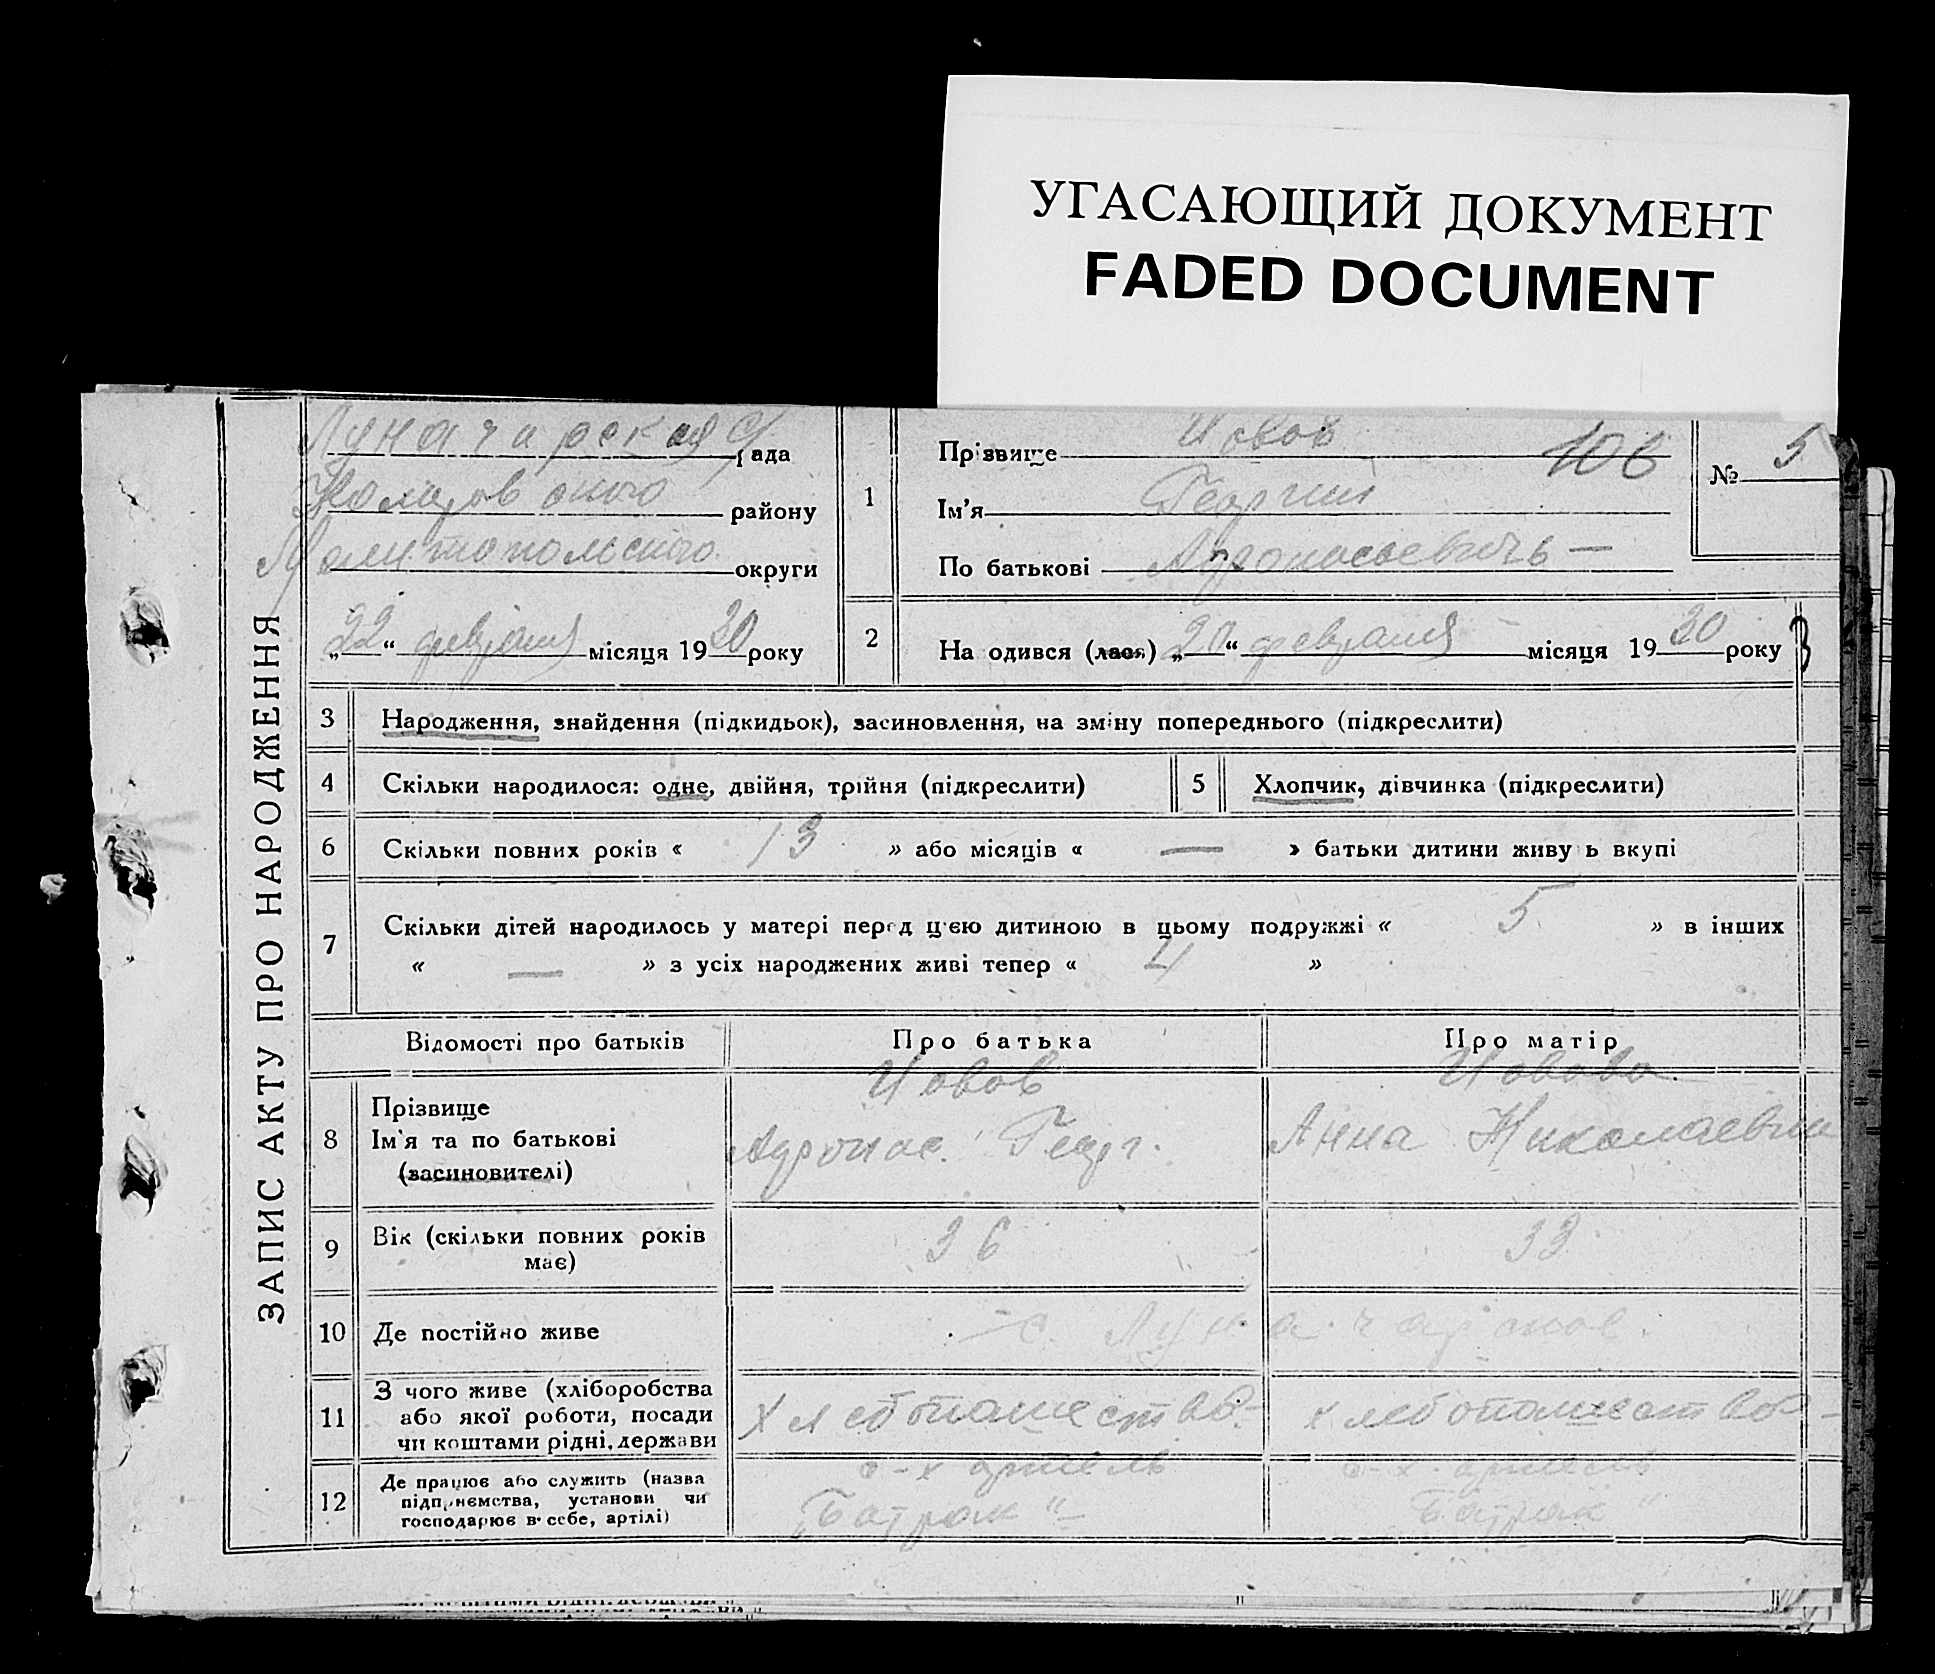 УГАСАЮЩИЙ ДОКУМЕНТ
FADED DOCUMENT
ЗАПИС АКТУ ПРО НАРОДЖЕННЯ
Луначарская с/рада
району
Мелитопольского округи
„22“ февраля місяця 1930 року
1
Прізвище Иовов
106
№ 5
Ім’я Георгий
По батькові Афонасьевичь —
2
На одився (лась) „20“ февраля місяця 1930 року
3
Народження, знайдення (підкидьок), засиновлення, на зміну попереднього (підкреслити)
4
Скільки народилося: одне, двійня, трійня (підкреслити)
5
Хлопчик, дівчинка (підкреслити)
6
Скільки повних років « 13 » або місяців « — » батьки дитини живу ь вкупі
7
Скільки дітей народилось у матері перед ц’єю дитиною в цьому подружжі « 5 » в інших
« — » з усіх народжених живі тепер « 4 »
Відомості про батьків
Про батька
Про матір
8
Прізвище
Ім’я та по батькові
(засиновителі)
Иовов
Афонас. Георг.
Иовова
Анна Николаевна
9
Вік (скільки повних років
має)
36
33
10
Де постійно живе
с. Луначарское.
11
З чого живе (хліборобства
або якої роботи, посади
чи коштами рідні, держави
Хлебопашество
хлебопашество
12
Де працює або служить (назва
підприємства, установи чи
господарює в себе, артілі)
с-х артель
„Батрак“
с-х. артель
Батрак“